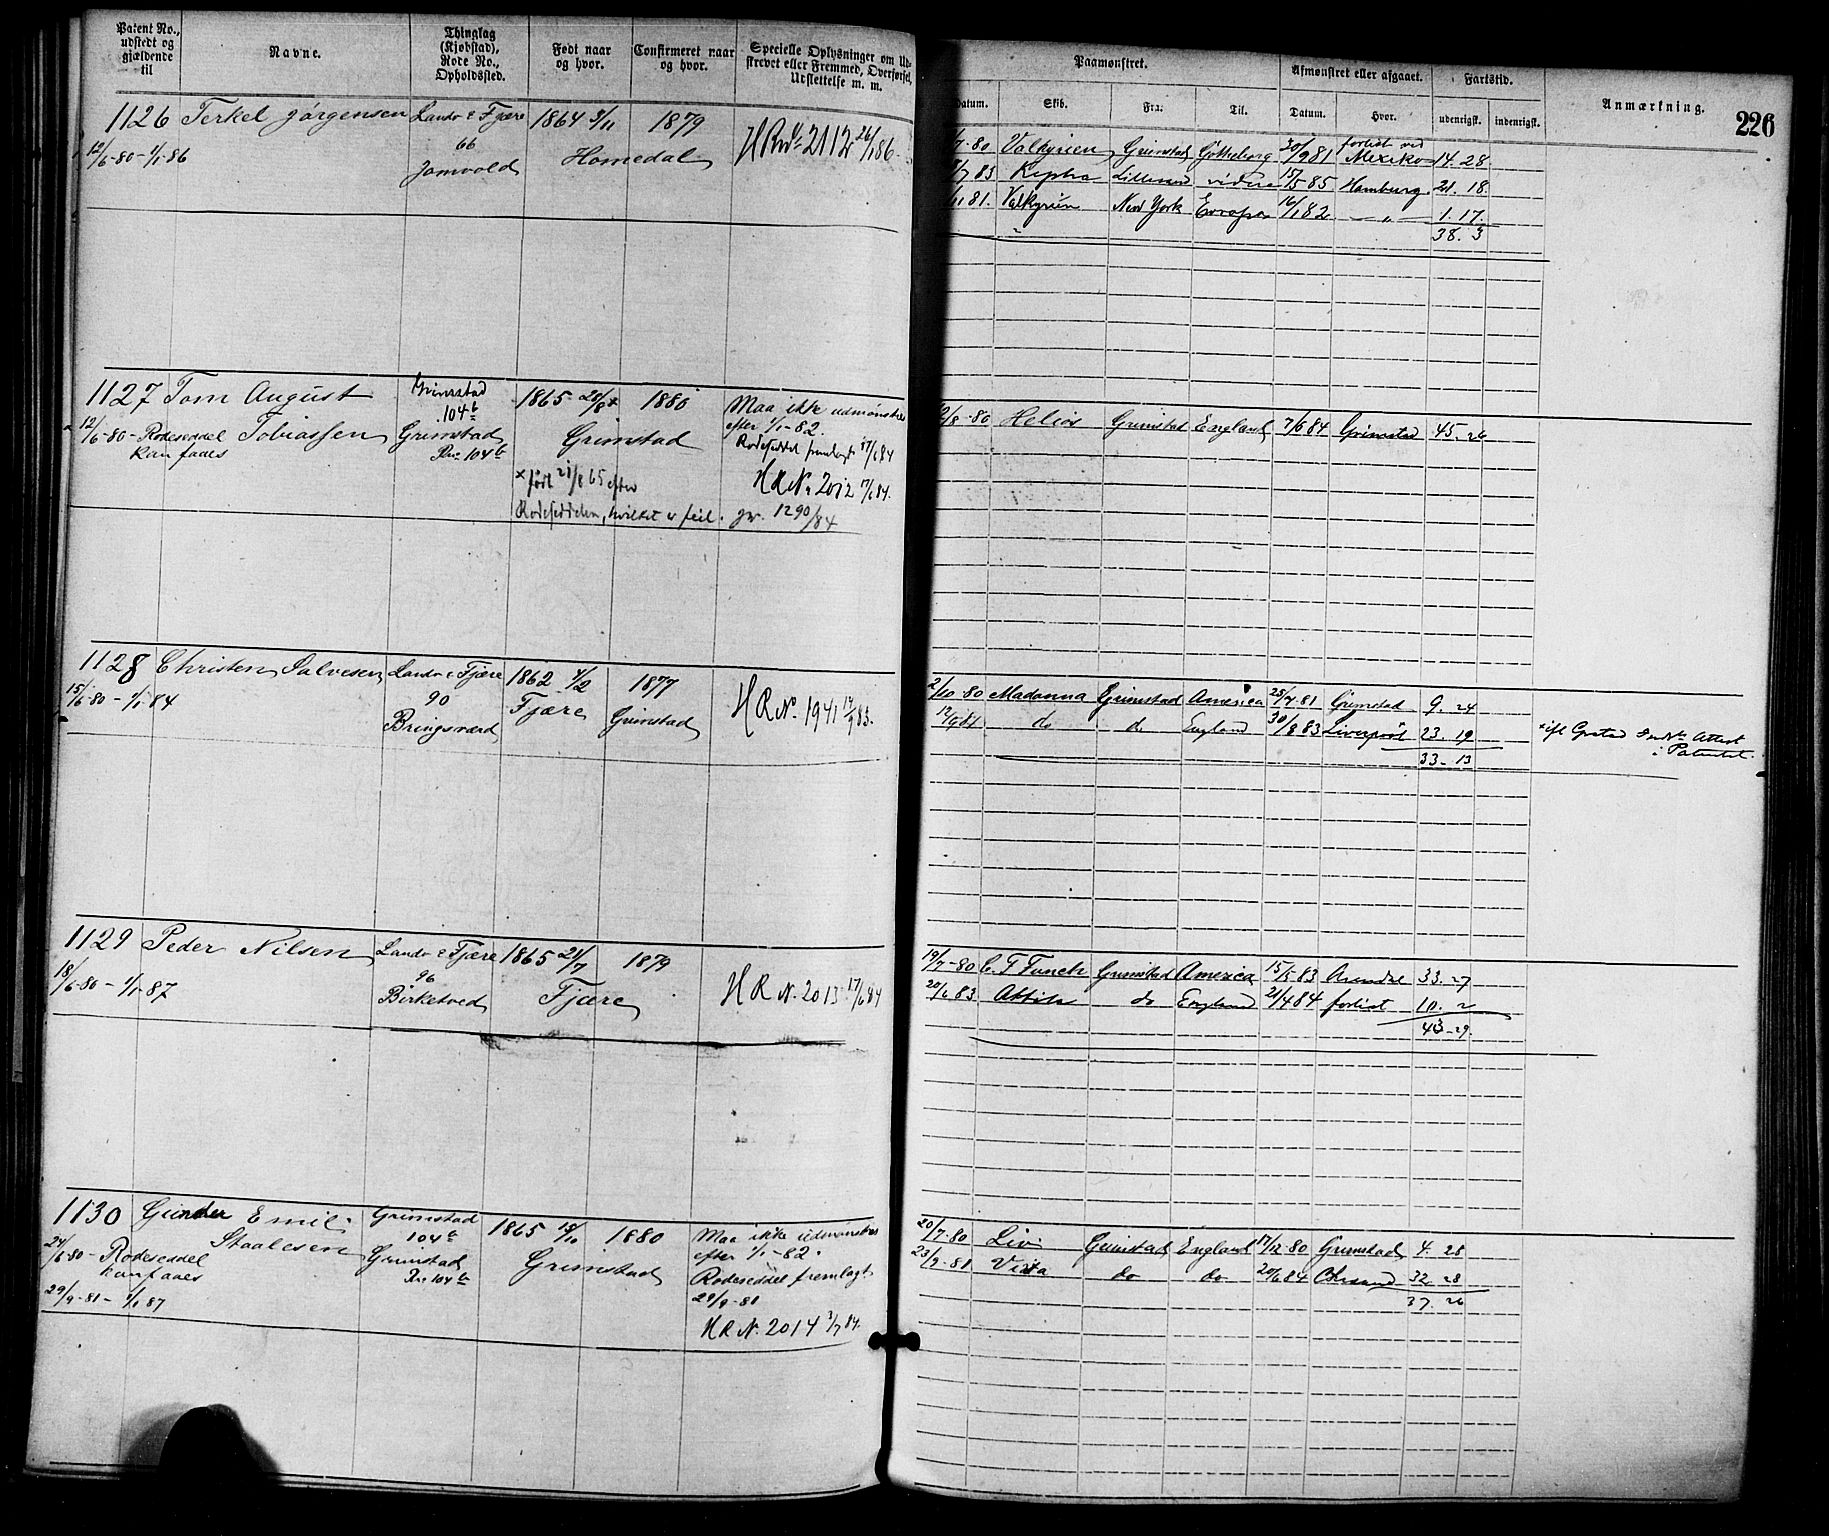 Patent No., udstedt og gjældende til
Navne.
Thinglag (Kjøbstad), Rode No., Opholdssted.
Født naar og hvor.
Confirmeret naar og hvor.
Specielle Oplysninger om Udskrevet eller Fremmed, Overførsel, Udslettelse m. m.
Paamønstret.
Afmønstret eller afgaaet.
Fartstid.
Anmærkning.
226
Datum.
Skib.
Fra:
Til.
Datum.
Hvor.
udenrigsk.
indenrigsk.
1126 Terkel Jørgensen Landv & Fjære 1864 3/11 1879 HRNo 2112 26/1 86.
12/6-80 - 1/1-86 66 Homedal
Jomvold
/7-80 Valkyrien Grimstad Gøtheborg 20/9 81 forlist ved Mexiko 14. 28
/7 83 Lillesand videre 15/5 85 Hamburg. 21. 18.
/11 81. Valkyrien New York Europa 16/1 82 — „ — 1. 17.
38. 3
1127 Tom August Grimstad 1865 28/8 x 1880 Maa ikke udmønstres
104 b efter 1/1-82.
12/6-80 - Rodeseddel Tobiassen Grimstad Grimstad Rodeseddel fremlagt 17/6 84
kan faaes Rno. 104 b
x født 21/8 65 efter HRNo 2012 17/6 84.
Rodeseddelen, hvilket er feil. jvr. 1290/84
12/8-80 Helios Grimstad England 7/6 84 Grimstad 45. 26
1128 Christen Salvesen Landv & Fjære 1862 4/2 1877 HRNo. 1941 14/9 83.
15/6-80 - 1/1-84 90 Fjære Grimstad
Bringsværd
2/10-80 Madonna Grimstad America 25/7 81 Grimstad 9. 24
12/9 81 do do England 30/8 83 Liverpool 23. 19
33 - 13
Attest
i Patentet.
1129 Peder Nilsen Landv & Fjære 1865 21/7 1879 HRN. 2013 17/6 84
18/6-80 - 1/1-87 96 Fjære
Birketved
19/7-80 C. T Funch Grimstad America 15/5 83 Arendal 33. 27
20/6 83 Attila do England 21/4 84 forlist 10. 2
43 - 29.
1130 Gunder Emil Grimstad 1865 18/10 1880 Maa ikke udmønstres
Staalesen 104 b efter 1/1-82.
24/6-80 - Rodeseddel Grimstad Grimstad Rodeseddel fremlagt
kan faaes Rno 104 b 29/9-81
29/9-81 - 1/1 87 HRN. 2014 3/7 84.
20/7-80 Liv Grimstad England 17/12-80 Grimstad 4. 28
23/9-81 Vista do do 20/6 84 Chrsand 32. 28
37. 26